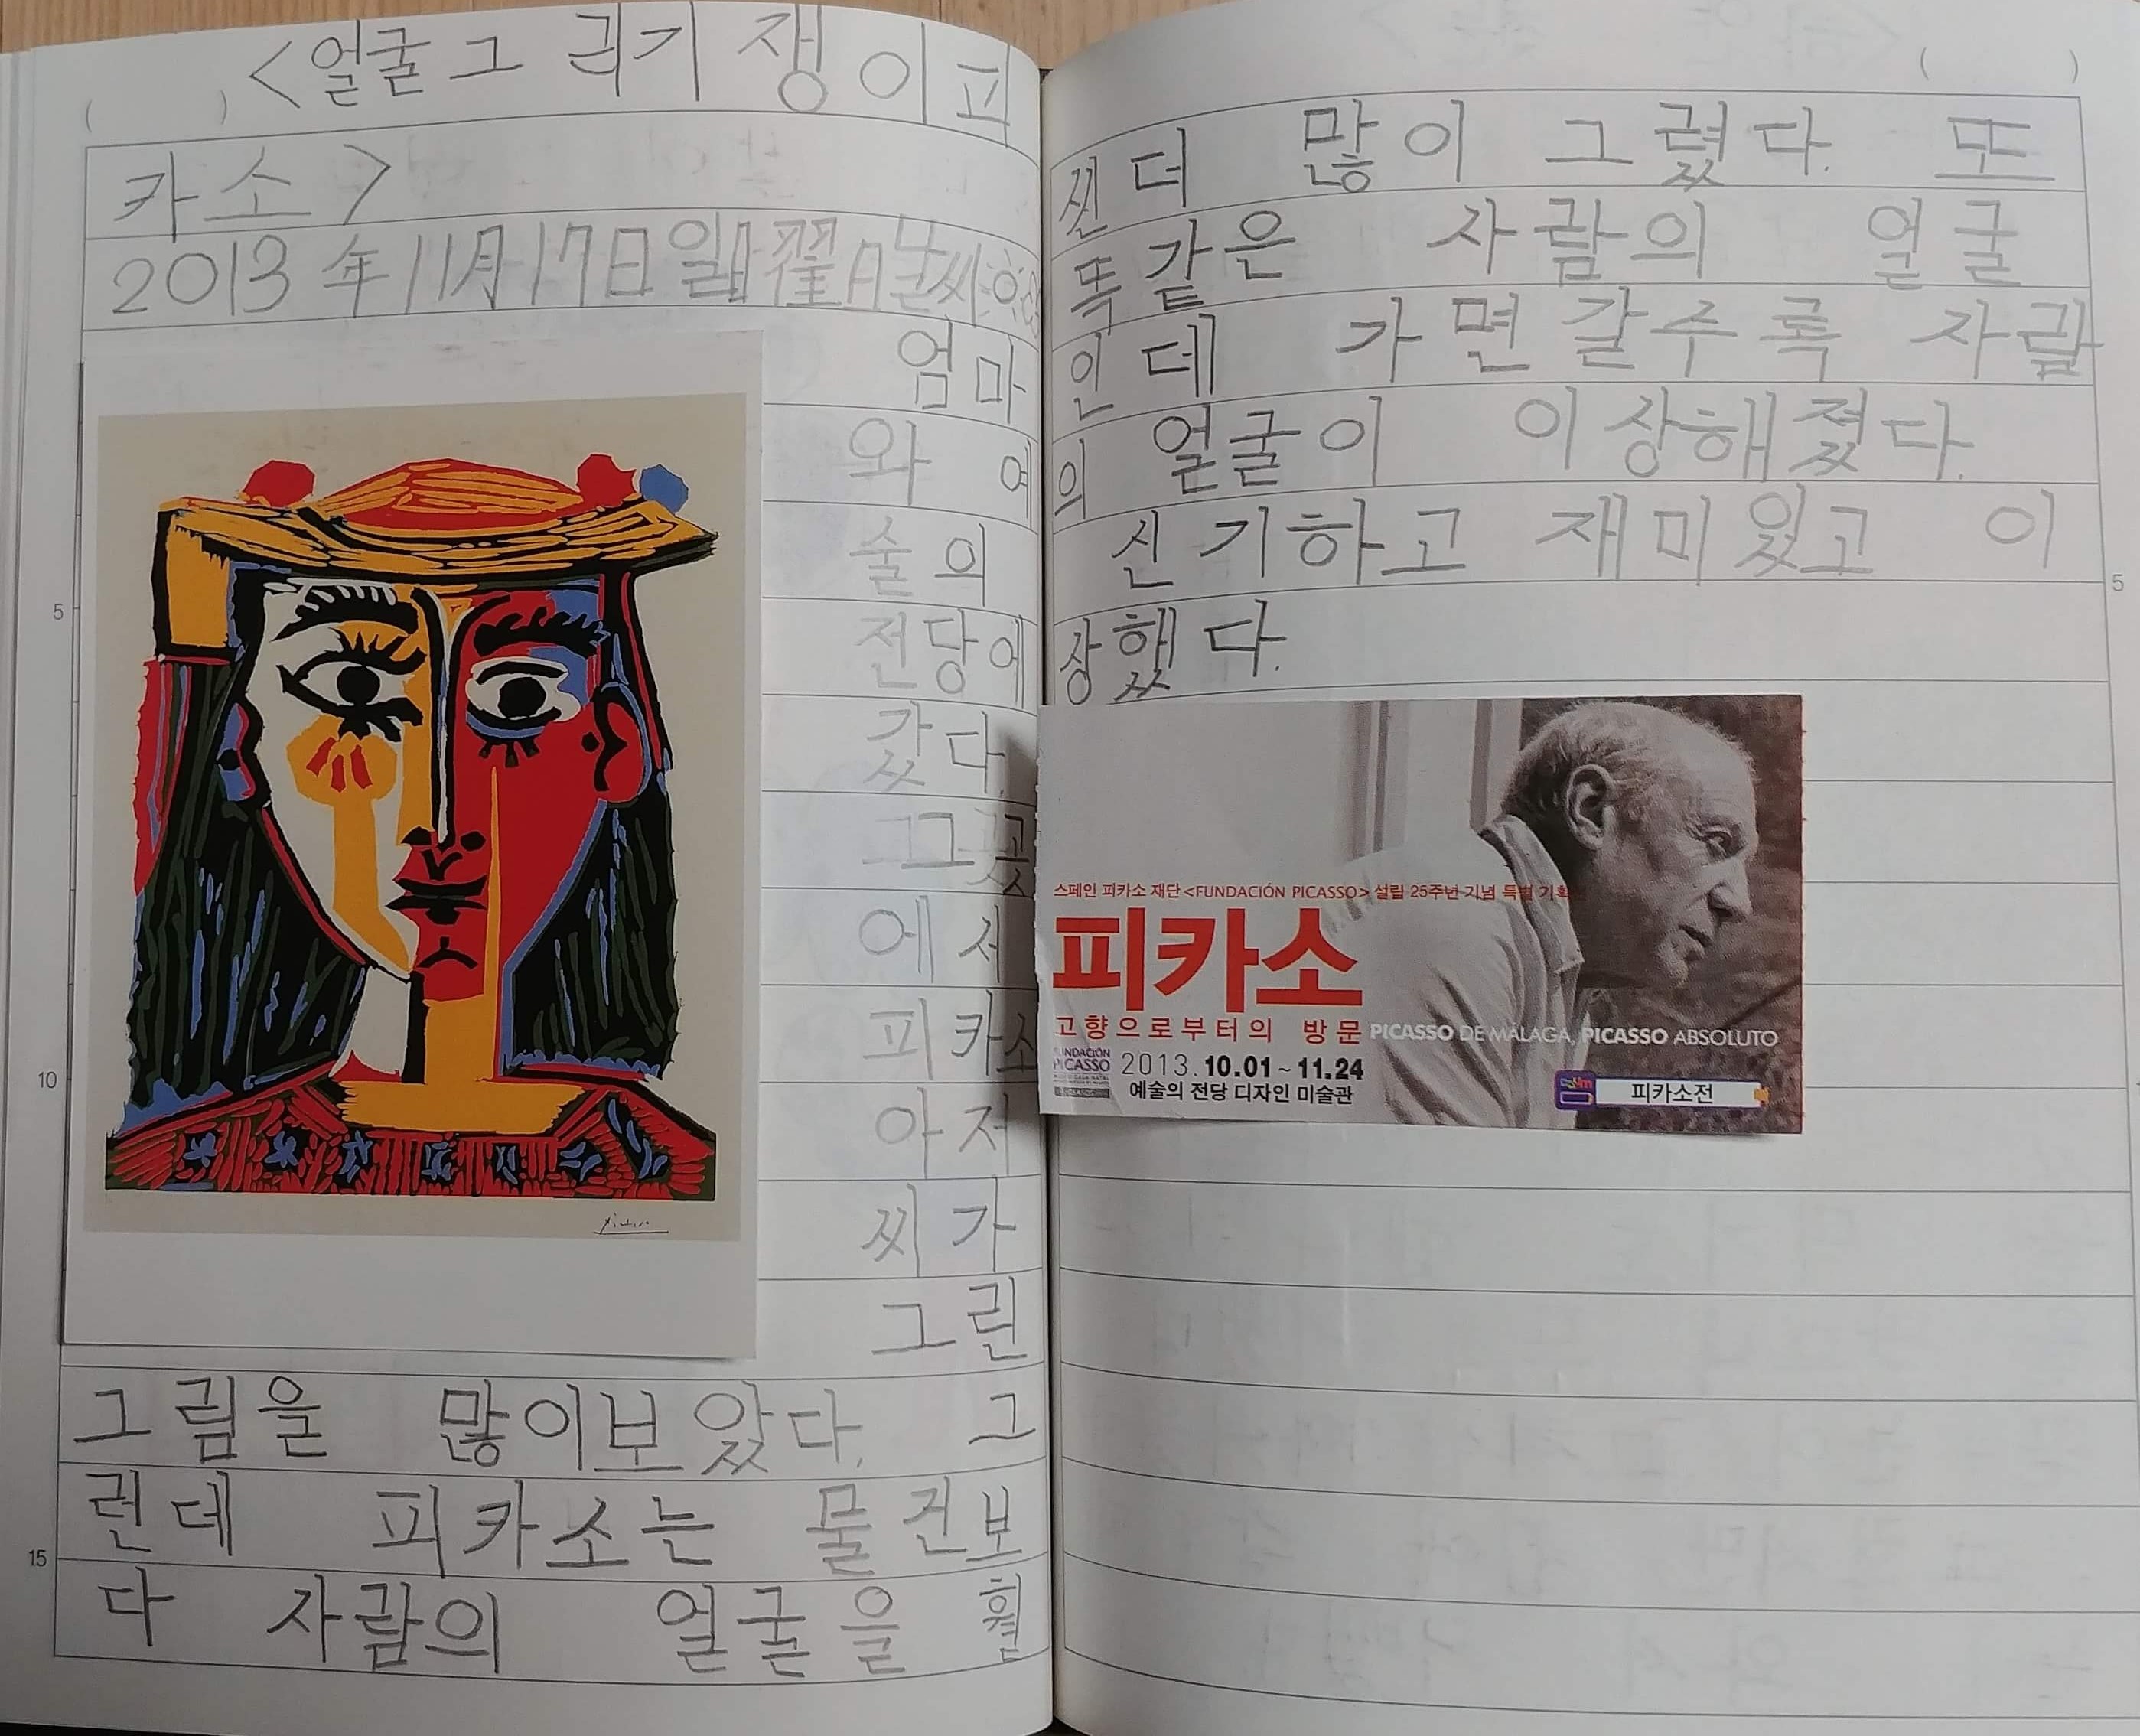 ( ) <얼굴그리기쟁이피
카소>
2013年11月17日일日曜日날씨
엄마
와 예
술의
전당에
갔다.
그곳
에서
피카소
아저
씨가
그린
그림을 많이보았다. 그
런데 피카소는 물건보
다 사람의 얼굴을 훨
5
10
15
( )
씬더 많이 그렸다. 또
똑같은 사람의 얼굴
인데 가면갈수록 사람
의 얼굴이 이상해졌다.
신기하고 재미있고 이
상했다.
5
스페인 피카소 재단 <FUNDACIÓN PICASSO> 설립 25주년 기념 특별 기획
피카소
고향으로부터의 방문 PICASSO DE MÁLAGA, PICASSO ABSOLUTO
FUNDACIÓN
PICASSO
2013. 10.01 ~ 11.24
예술의 전당 디자인 미술관
피카소전
Picasso